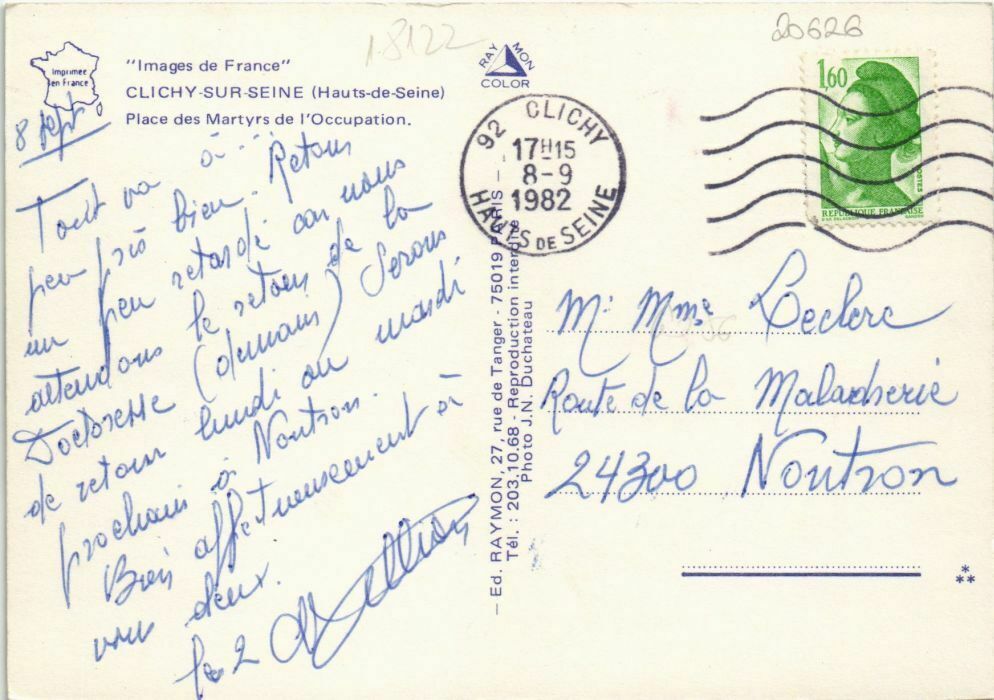 18122
20626
Imprimée
en France
"Images de France"
CLICHY-SUR-SEINE (Hauts-de-Seine)
Place des Martyrs de l'Occupation.
RAYMON
COLOR
92 CLICHY
17H15
8-9
1982
HAUTS DE SEINE
1,60
POSTES
REPUBLIQUE FRANÇAISE
8 sept
Tout va à...
peu près bien. Retour
un peu retardé car nous
attendons le retour de la
Doctoresse (demain) Serons
de retour lundi ou mardi
prochain à Nontron.
Bien affectueusement à
vous deux.
les 2
— Ed. RAYMON, 27, rue de Tanger - 75019 PARIS —
Tél. : 203.10.68 - Reproduction interdite
Photo J.N. Duchateau
Mr Mme Leclerc
Route de la Maladrerie
24300 Nontron